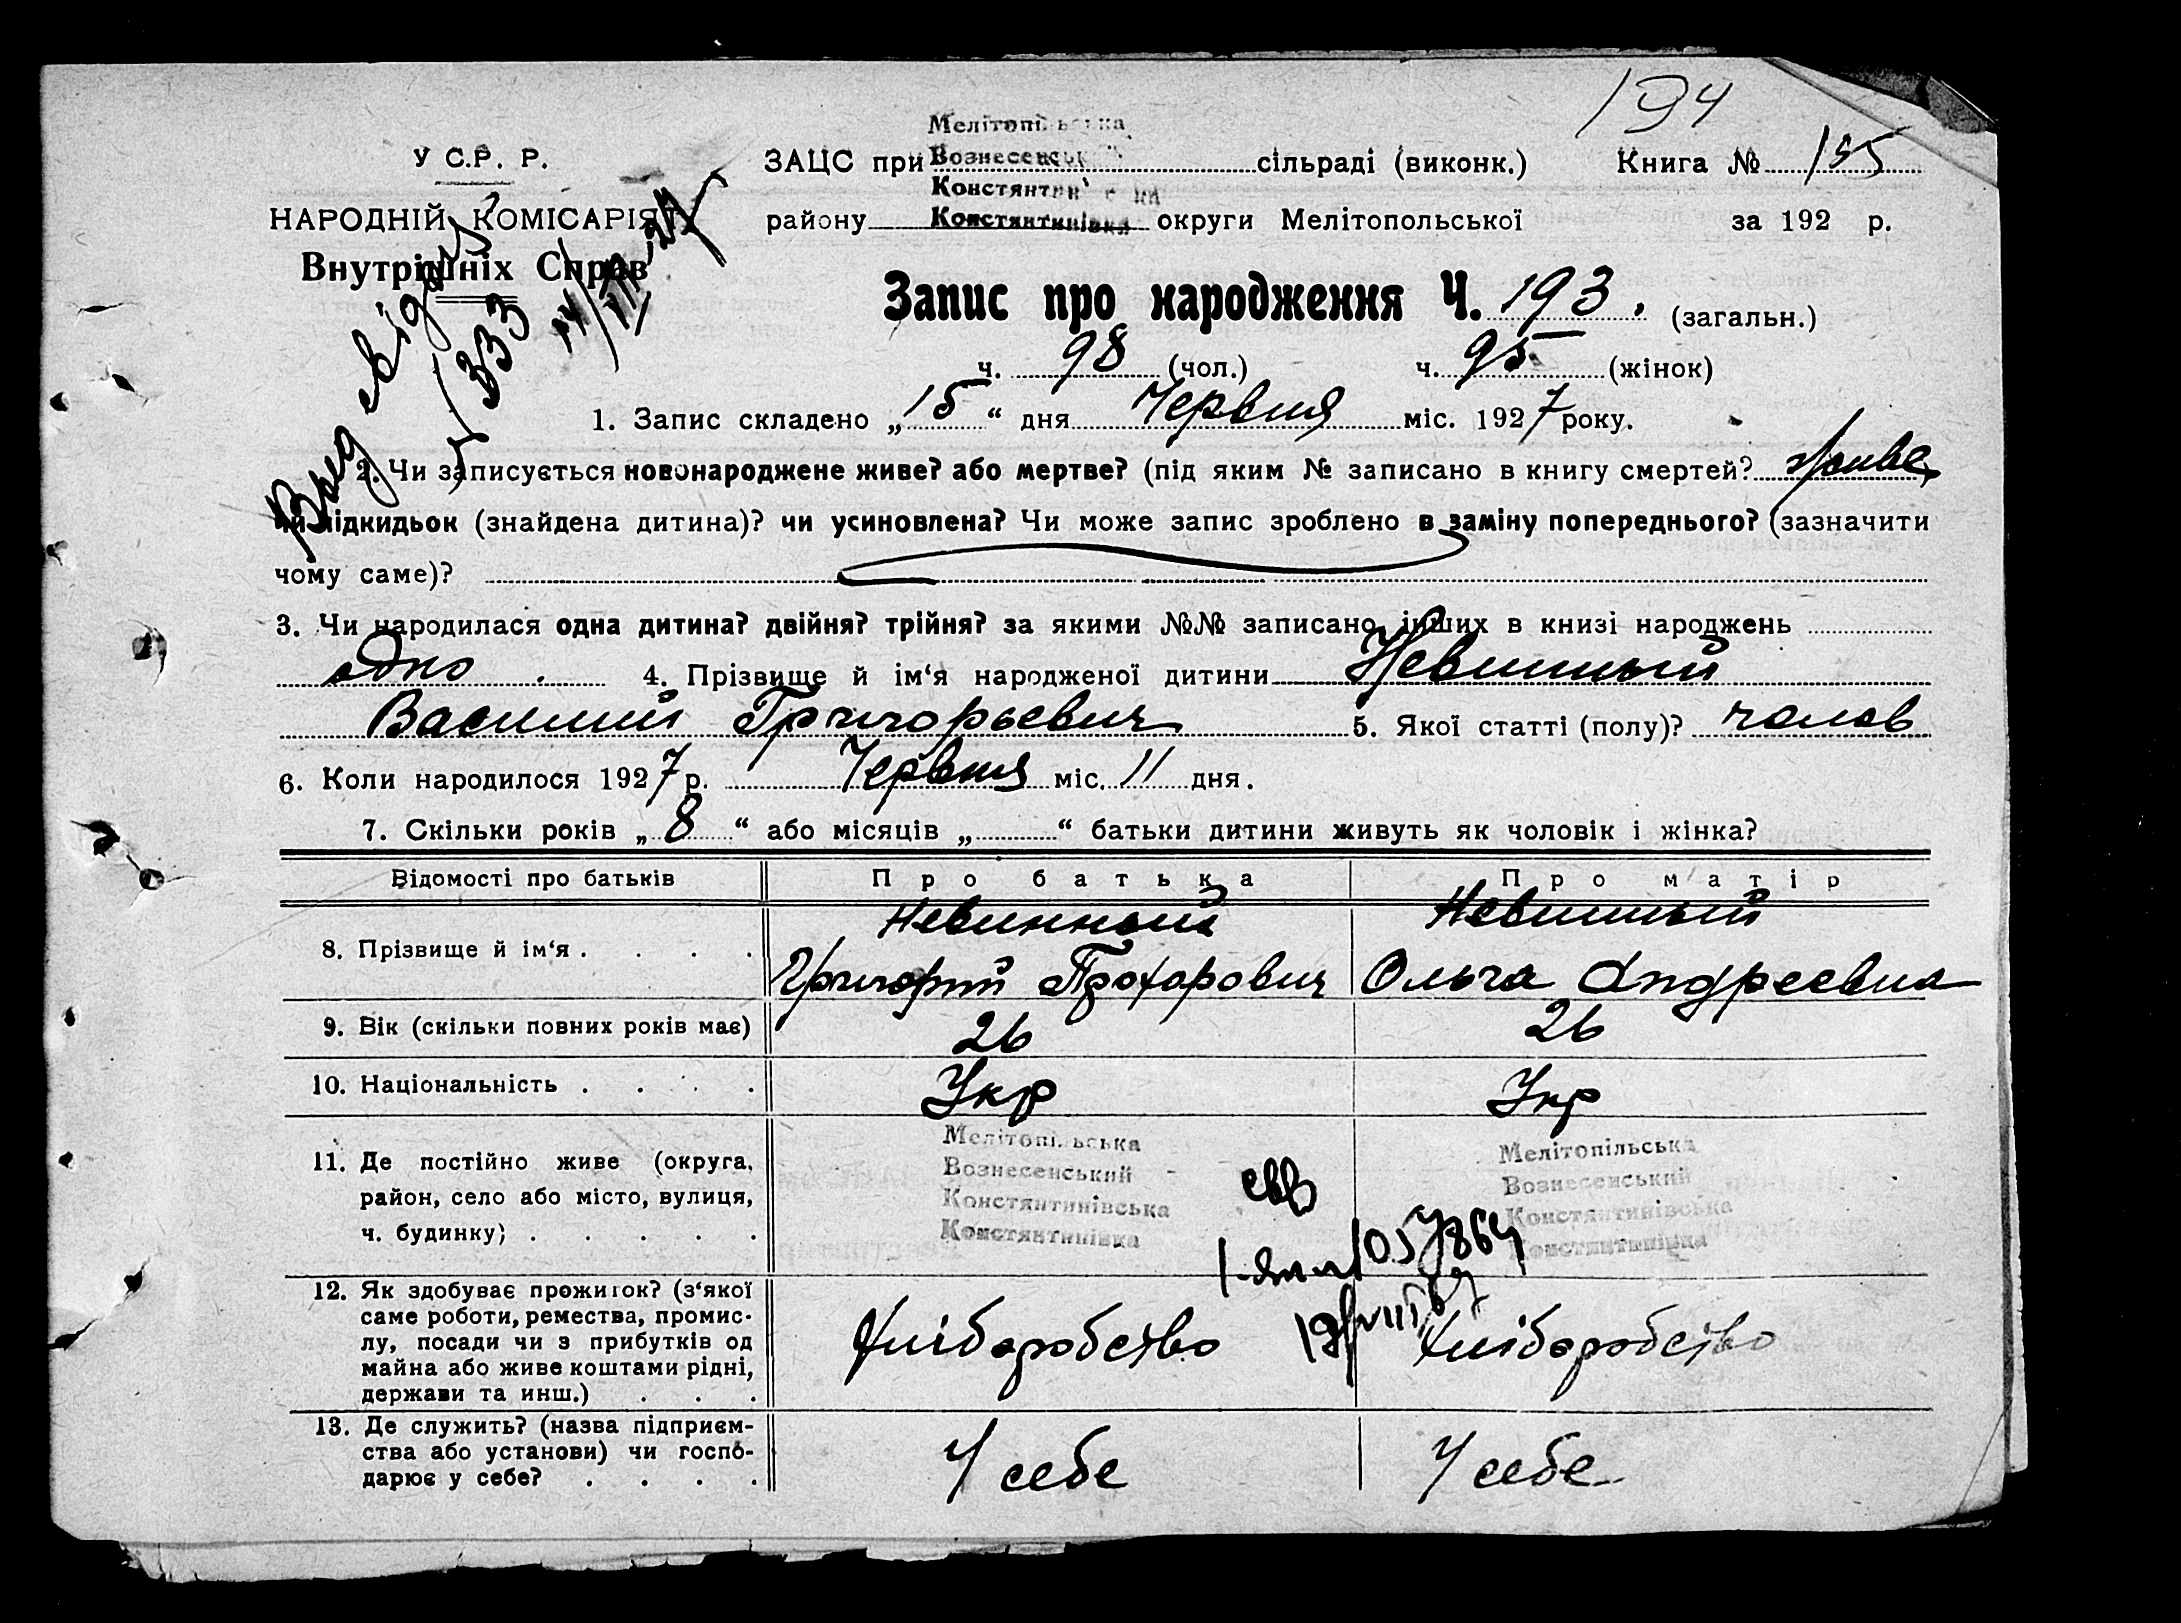 194
Мелітопільська
У С.Р. Р. ЗАЦС при Вознесенський сільраді (виконк.) Книга № 155
Констянтинівська
НАРОДНІЙ КОМІСАРІЯТ району Констянтинівка округи Мелітопольської за 192 р.
Внутрішніх Справ
Запис про народження Ч. 193. (загальн.)
ч. 98 (чол.) ч. 95 (жінок)
333
1. Запис складено „15“ дня Червня міс. 1927 року.
2. Чи записується новонароджене живе? або мертве? (під яким № записано в книгу смертей? живе)
чи підкидьок (знайдена дитина)? чи усиновлена? Чи може запис зроблено в заміну попереднього? (зазначити
чому саме)?
3. Чи народилася одна дитина? двійня? трійня? за якими №№ записано інших в книзі народжень
одно. 4. Прізвище й ім‘я народженої дитини Невинный
Василий Григорьевич 5. Якої статті (полу)? чолов
6. Коли народилося 1927 р. Червня міс. 11 дня.
7. Скільки років „8“ або місяців „ “ батьки дитини живуть як чоловік і жінка?
Відомості про батьків Про батька Про матір
Невинный Невинный
8. Прізвище й ім‘я . . . . Григорий Прохорович Ольга Андреевна
9. Вік (скільки повних років має) 26 26
10. Національність . . . . Укр Укр
Мелітопільська Мелітопільська
11. Де постійно живе (округа, Вознесенський Вознесенський
район, село або місто, вулиця, Констянтинівська Констянтинівська
ч. будинку) . . . . . Констянтинівка Констянтинівка
12. Як здобуває прожиток? (з‘якої
саме роботи, ремества, промис-
лу, посади чи з прибутків од Хліборобство Хліборобство
майна або живе коштами рідні,
держави та инш.) . . .
13. Де служить? (назва підприєм-
ства або установи) чи госпо- У себе У себе
дарює у себе? . . . .